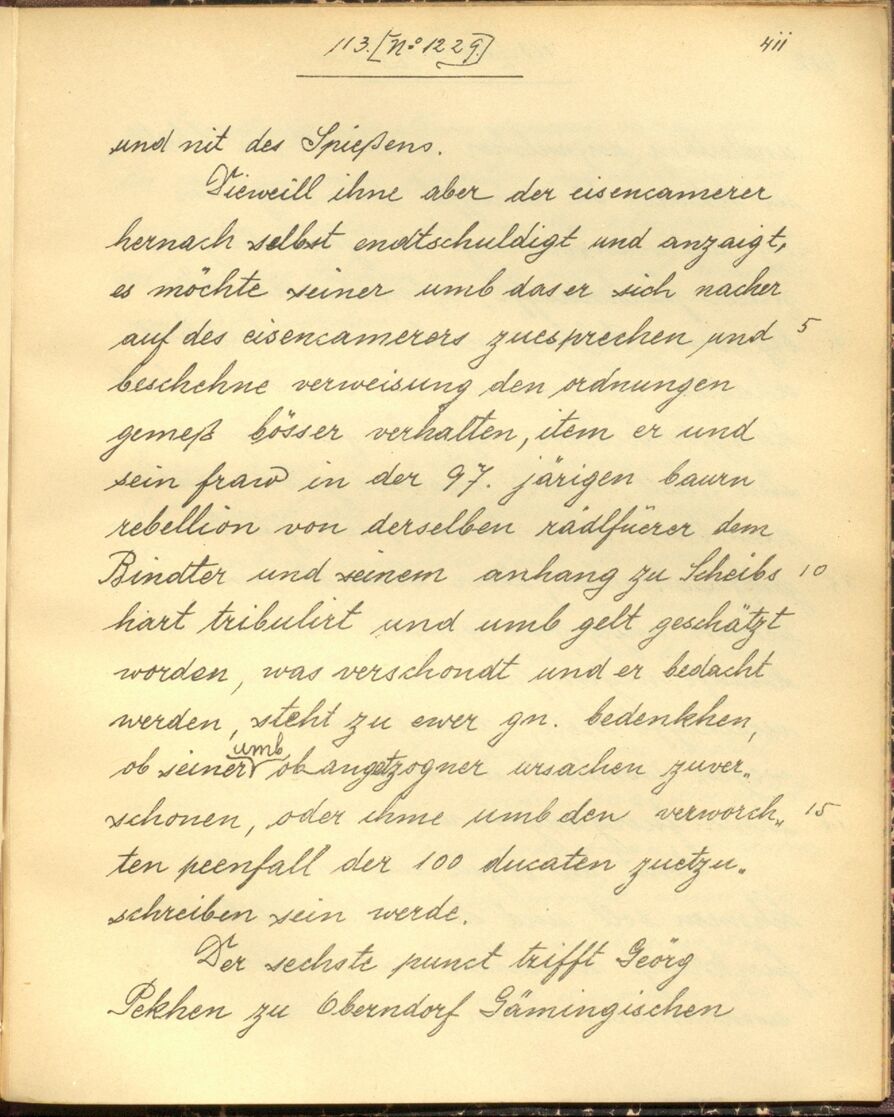 113. [No 1229]
411
und nit des Spießens.
Dieweill ihne aber der eisencamerer
hernach selbst endtschuldigt und anzaigt,
es möchte seiner umb das er sich nacher
auf des eisencamerers zuesprechen und 5
beschehne verweisung den ordnungen
gemeß bösser verhalten, item er und
sein fraw in der 97. järigen baurn
rebellion von derselben rädlfüerer dem
Bindter und seinem anhang zu Scheibs 10
hart tribulirt und umb gelt geschätzt
worden, was verschondt und er bedacht
werden, steht zu ewer gn. bedenkhen,
ob seiner umb obangetzogner ursachen zuver„
schonen, oder ihme umb den verworch„ 15
ten peenfall der 100 ducaten zuetzu„
schreiben sein werde.
Der sechste punct trifft Geörg
Pekhen zu Oberndorf Gämingischen